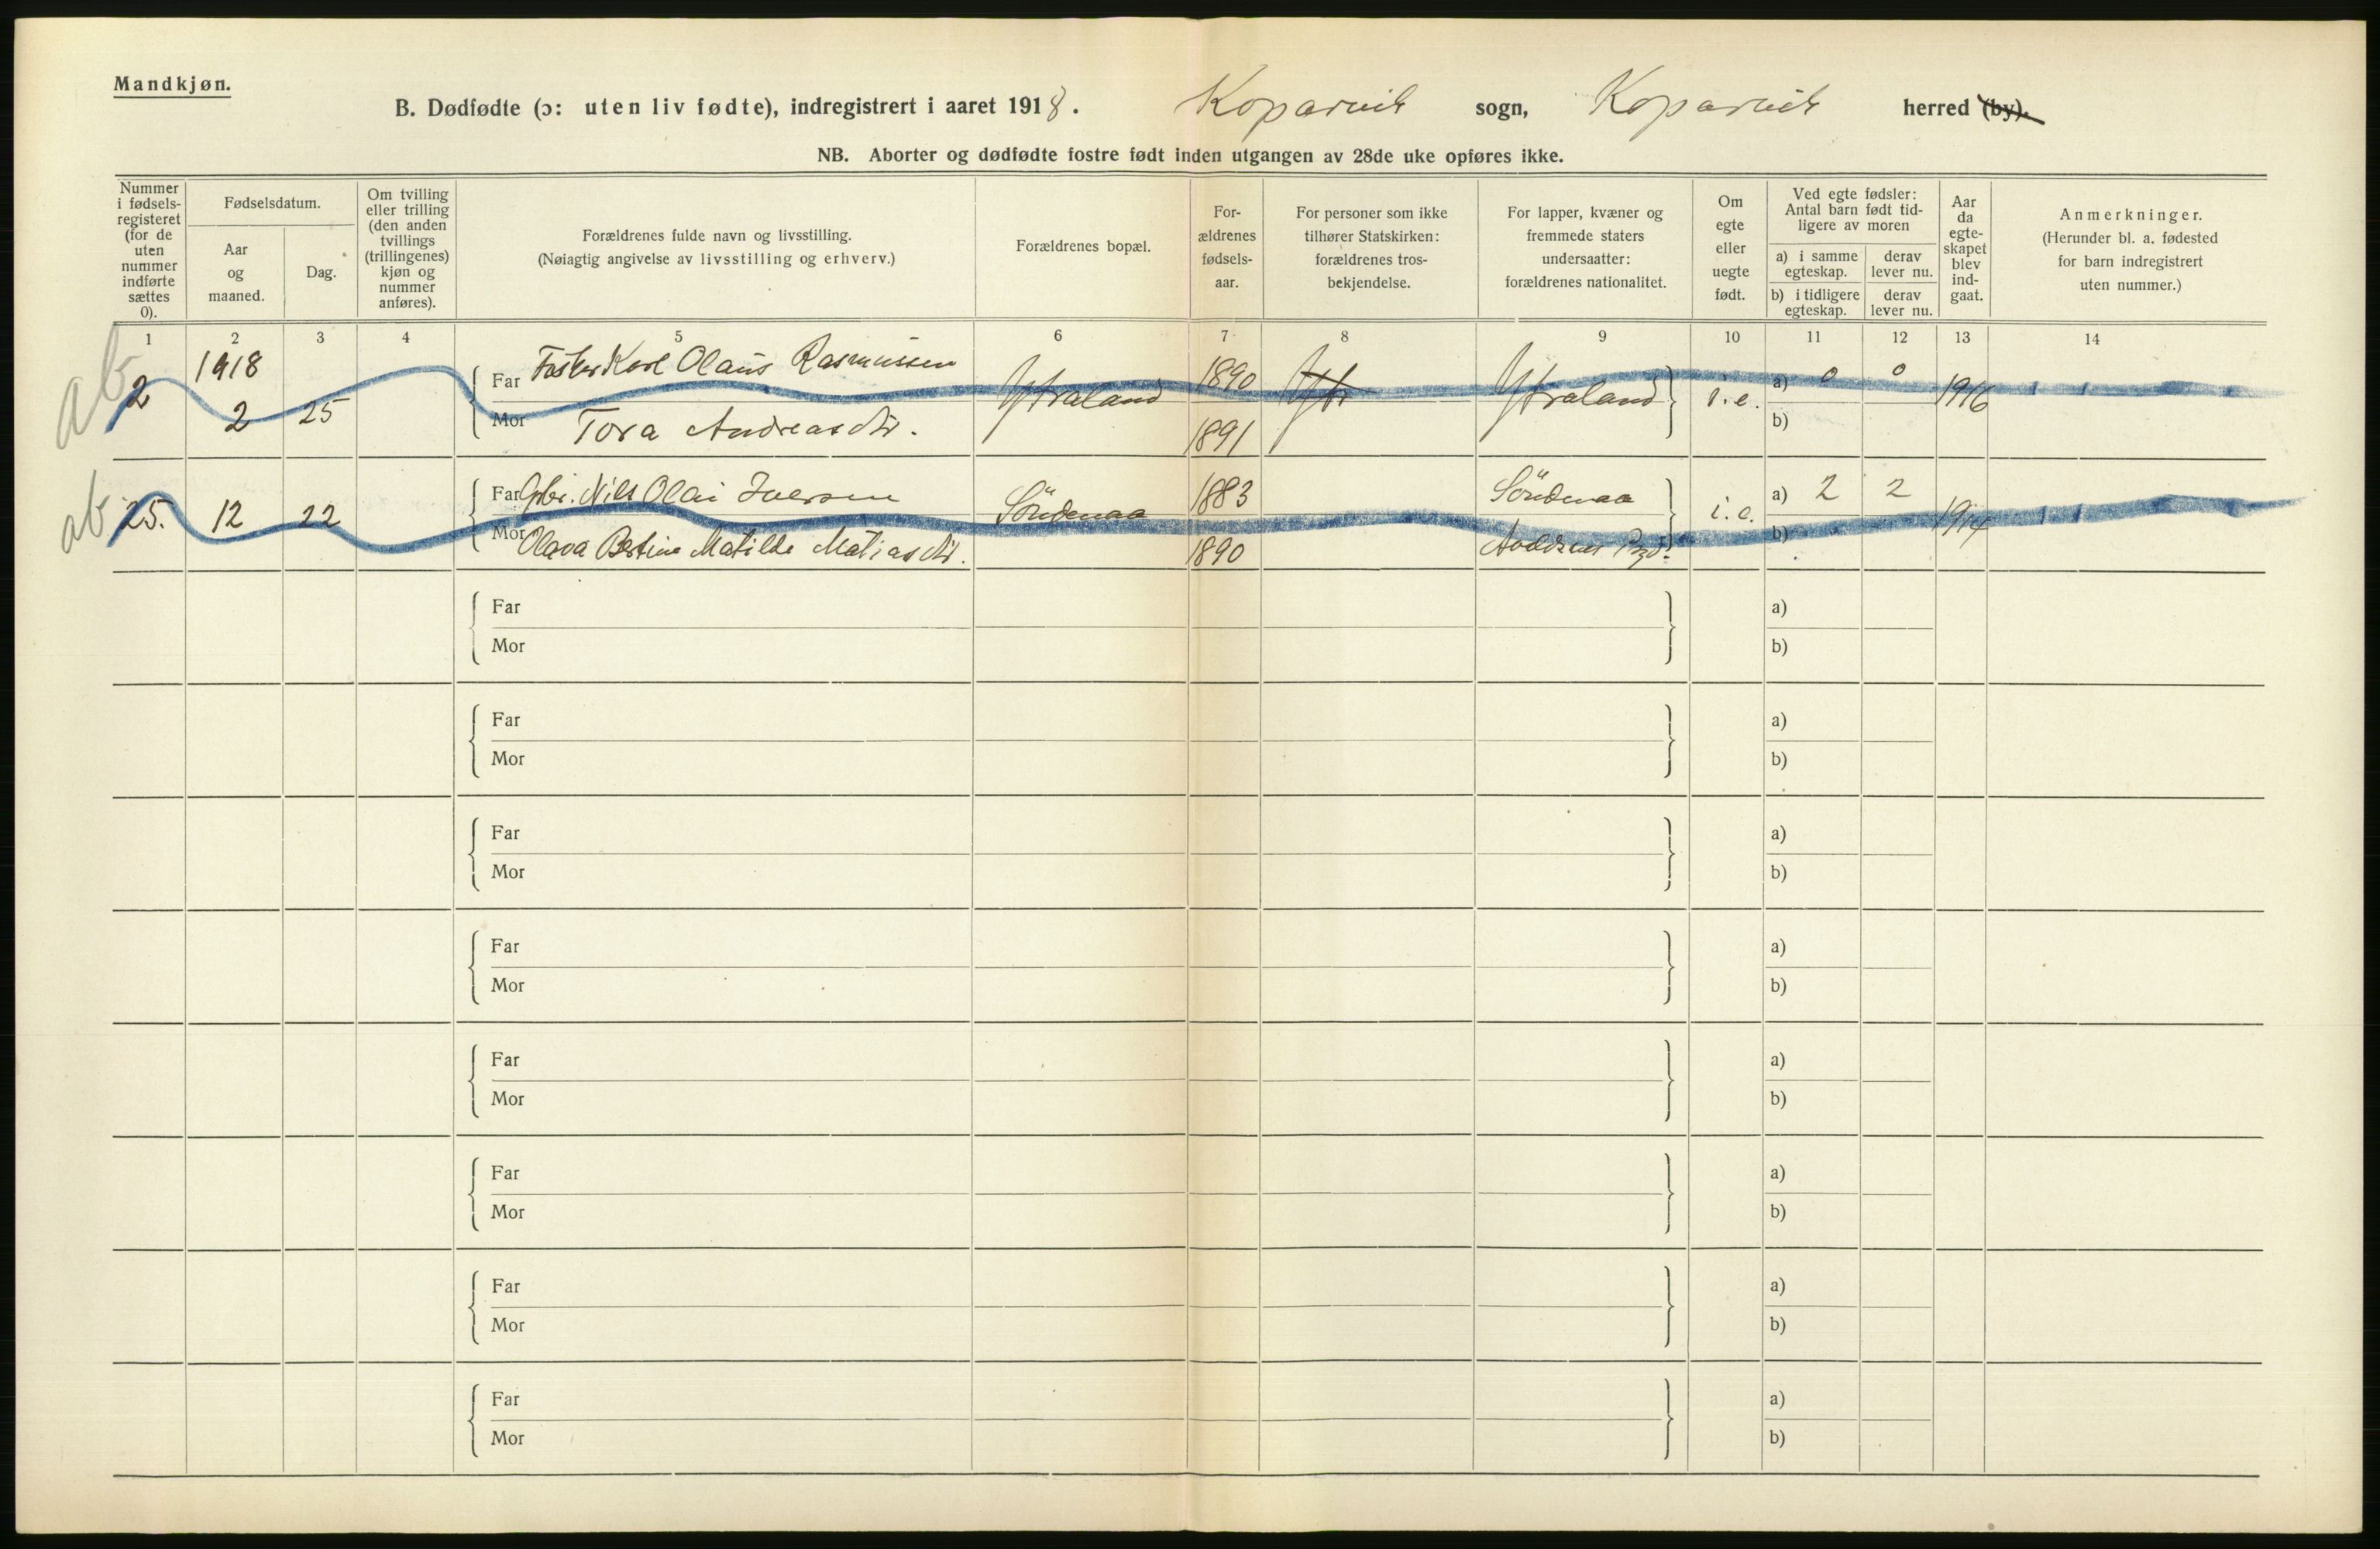 Mandkjøn.
B. Dødfødte (ɔ: uten liv fødte), indregistrert i aaret 1918. Kopervik sogn, Kopervik herred (by).
NB. Aborter og dødfødte fostre født inden utgangen av 28de uke opføres ikke.
Nummer i fødsels-registeret (for de uten nummer indførte sættes 0).
Fødselsdatum.
Aar og maaned.
Dag.
Om tvilling eller trilling (den anden tvillings (trillingenes) kjøn og nummer anføres).
Forældrenes fulde navn og livsstilling.
(Nøiagtig angivelse av livsstilling og erhverv.)
Forældrenes bopæl.
For-ældrenes fødsels-aar.
For personer som ikke tilhører Statskirken: forældrenes tros-bekjendelse.
For lapper, kvæner og fremmede staters undersaatter: forældrenes nationalitet.
Om egte eller uegte født.
Ved egte fødsler: Antal barn født tid-ligere av moren
a) i samme egteskap.
derav lever nu.
b) i tidligere egteskap.
derav lever nu.
Aar da egte-skapet blev ind-gaat.
Anmerkninger.
(Herunder bl. a. fødested for barn indregistrert uten nummer.)
1 2 3 4 5 6 7 8 9 10 11 12 13 14
ab 2 1918 2 25 Far Karl Olaus Rasmussen Ytraland 1890 Yt Ytraland i.e. a) 0 0 1916
Mor Tora Andreasdtr. 1891 b)
ab 25. 12 22 Far Gbr. Nils Olai Iversen Söndenaa 1883 Söndenaa i.e. a) 2 2 1914
Mor Olava Bertine Matilde Matiasdtr. 1890 b)
Far a)
Mor b)
Far a)
Mor b)
Far a)
Mor b)
Far a)
Mor b)
Far a)
Mor b)
Far a)
Mor b)
Far a)
Mor b)
Far a)
Mor b)